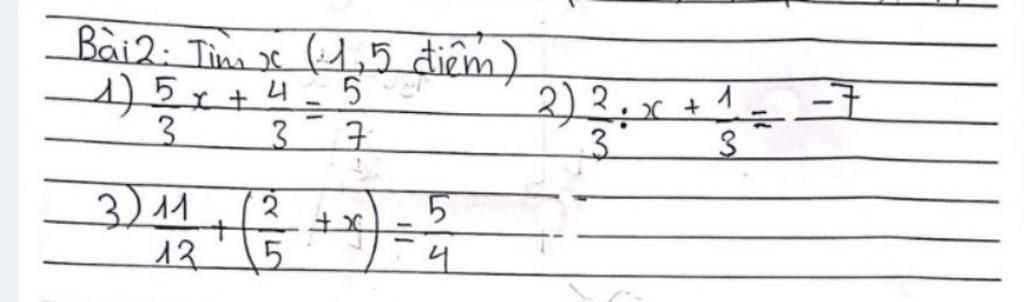 Bài 2: Tìm x (1,5 điểm)
1) 5/3 x + 4/3 = 5/7 2) 2/3 : x + 1/3 = -7
3) 11/12 + (2/5 + x) = 5/4